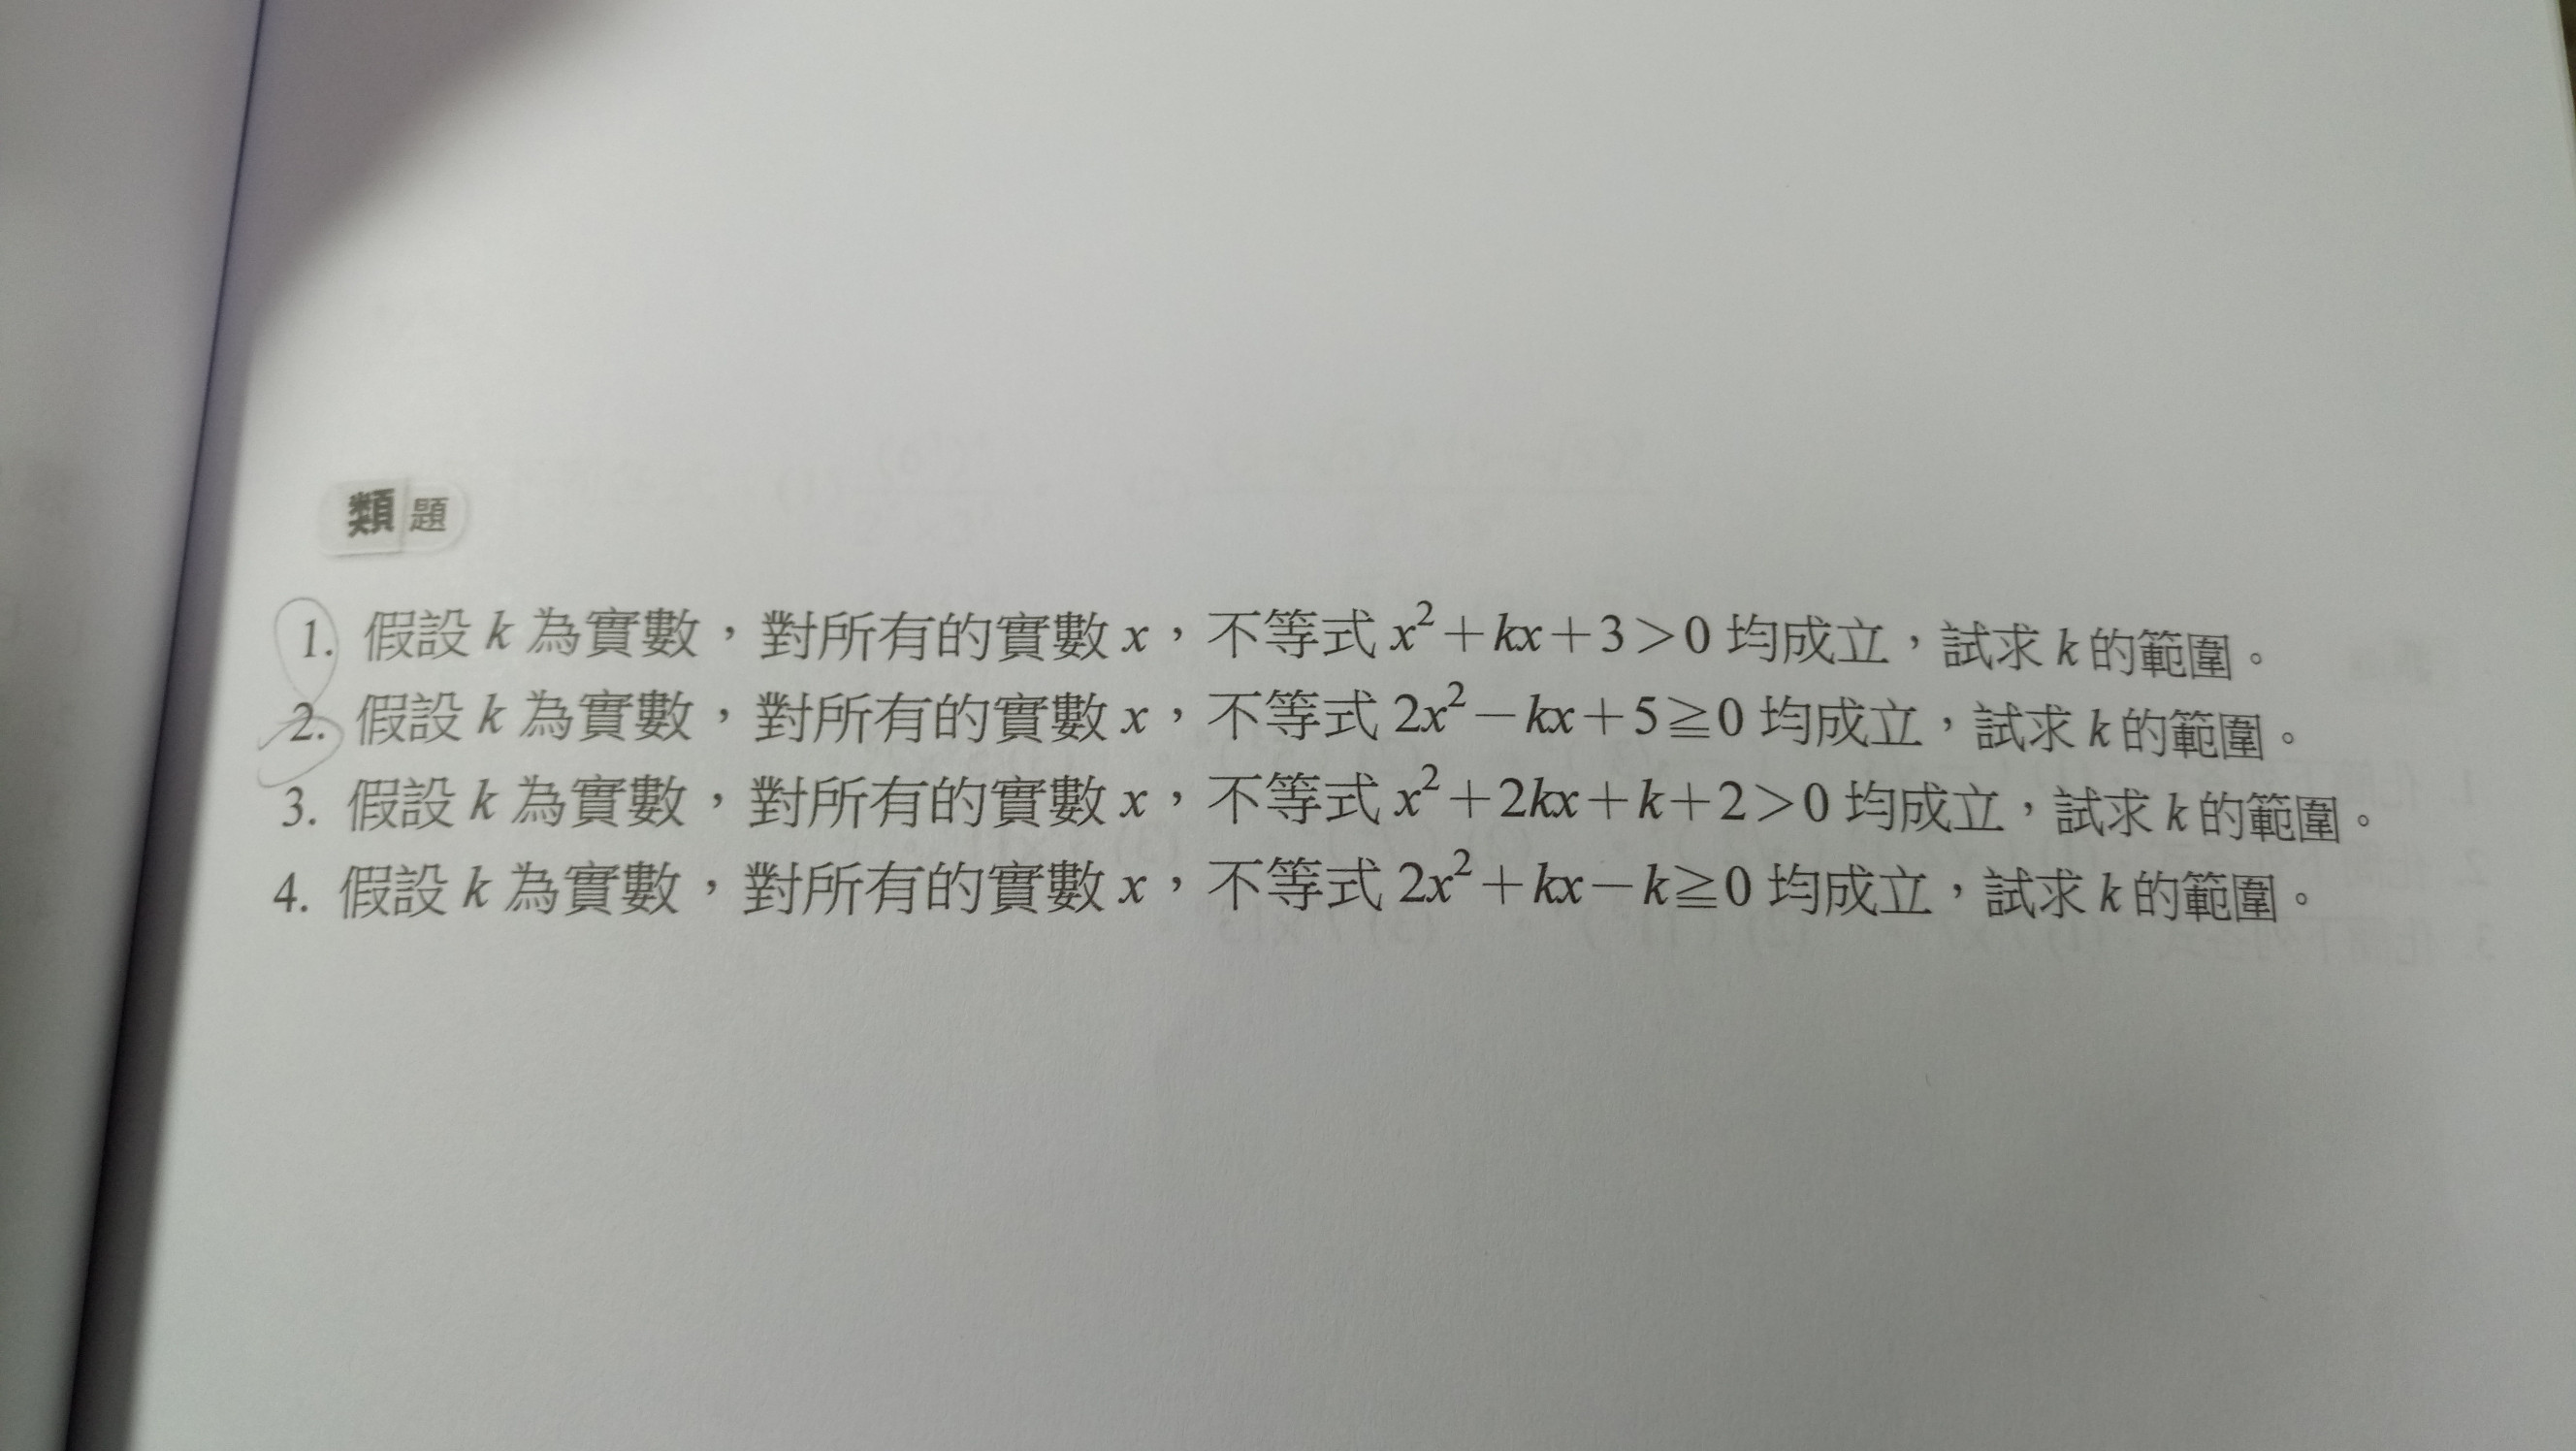 類題
1. 假設 k 為實數，對所有的實數 x，不等式 x²＋kx＋3＞0 均成立，試求 k 的範圍。
2. 假設 k 為實數，對所有的實數 x，不等式 2x²－kx＋5≧0 均成立，試求 k 的範圍。
3. 假設 k 為實數，對所有的實數 x，不等式 x²＋2kx＋k＋2＞0 均成立，試求 k 的範圍。
4. 假設 k 為實數，對所有的實數 x，不等式 2x²＋kx－k≧0 均成立，試求 k 的範圍。